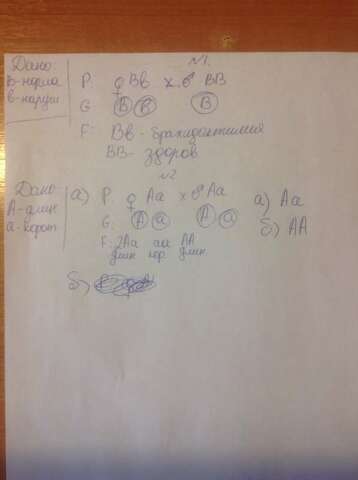 №1.
Дано:
В-норма
в-наруш
P: ♀ Вв х ♂ ВВ
G: В в В
F: Вв - брахидактилия
ВВ - здоров
№2
Дано:
А-длин
а-корот
а) P: ♀ Аа х ♂ Аа
G: А а А а
F: 2Аа аа АА
длин кор. длин
а) Аа
б) АА
б)